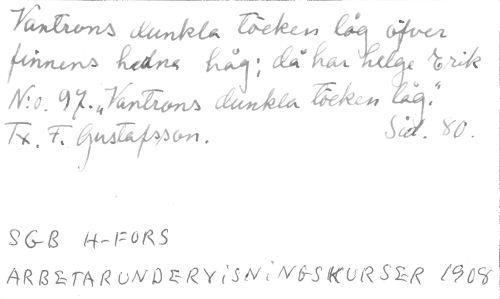 Vantrons dunkla töcken låg öfver
finnens hedna håg; då har helge Erik
N:o. 97. "Vantrons dunkla töcken låg."
Tx. F. Gustafsson. Sid. 80.
SGB H-FORS
ARBETARUNDERVISNINGSKURSER 1908